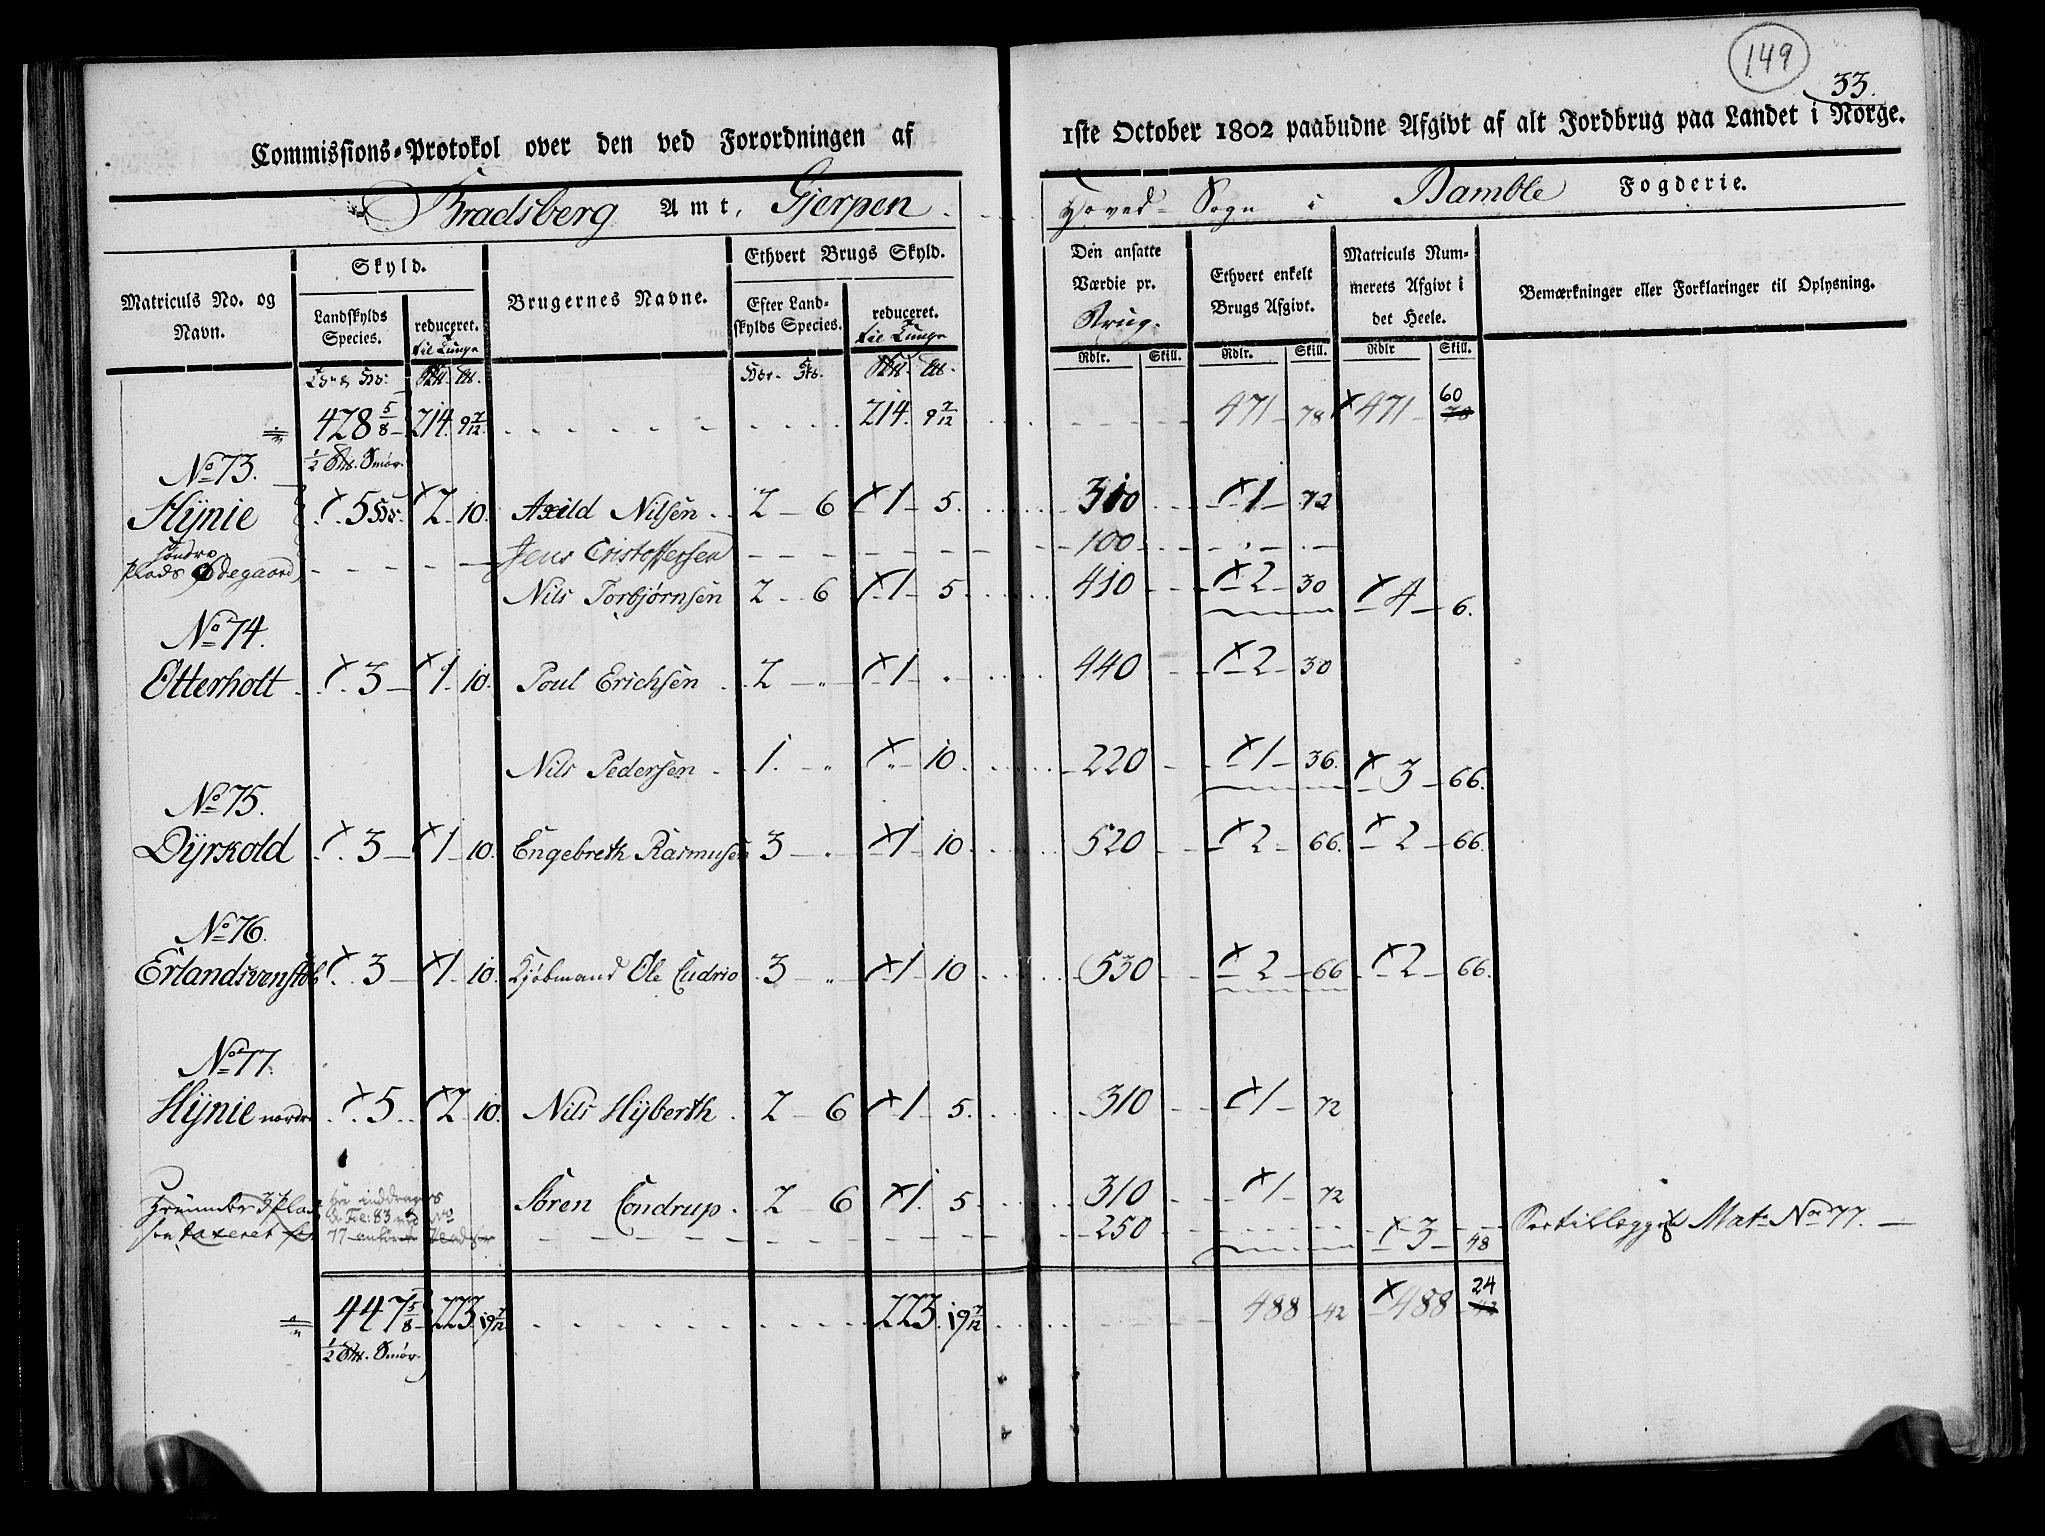 149
33.
Commissions-Protokol over den ved Forordningen af 1ste October 1802 paabudne Afgivt af alt Jordbrug paa Landet i Norge.
Bradsberg Amt, Gjerpen Hoved-Sogn i Bamble Fogderie.
Matriculs No. og Navn. Skyld. Brugernes Navne. Ethvert Brugs Skyld. Den ansatte Værdie pr. Brug. Ethvert enkelt Brugs Afgivt. Matriculs Nummerets Afgivt i det Heele. Bemærkninger eller Forklaringer til Oplysning.
Landskylds Species. reduceret. til Tunge Efter Landskylds Species. reduceret. til Tunge Rdlr. Skill. Rdlr. Skill. Rdlr Skill.
428 5/8 214. 9 7/12 214. 9 7/12 471 - 78 × 471 - 60 78
1/2 Smør.
No 73.
Hÿnie × 5 × 2 - 10. Axild Nilsen 2 - 6 × 1 - 5. 310 × 1 - 72
søndre
Plads Ødegaard Jens Cristoffersen 100
Nils Torbjørnsen 2 - 6 × 1 - 5 410 × 2 - 30 × 4 - 6.
No 74.
Otterholt × 3 × 1 - 10. Poul Erichsen 2 - " × 1 - . 440 × 2 - 30
Nils Pedersen 1. - " × " 10. 220 × 1 - 36. × 3 - 66.
No 75.
Dÿrkold × 3 × 1 - 10. Engebreth Rasmusen 3 - " × 1 - 10. 520 × 2 - 66. × 2 - 66.
No 76.
Erlandsvenstøb × 3 × 1 - 10. Kjøbmand Ole Cudrio 3 - " × 1 - 10 530 × 2 - 66 × 2 - 66.
No 77.
Hÿnie nordre × 5 × 2 - 10. Nils Hÿberth 2 - 6 × 1 - 5. 310 × 1 - 72
Søren Condrup 2 - 6 × 1. 5 310 × 1 - 72
taxeret 250 × 3 - 48 Mat: No 77.
447 5/8 223. 19 7/12 223. 19 7/12 488 - 42 × 488 - 24 42
1/2 Smør.